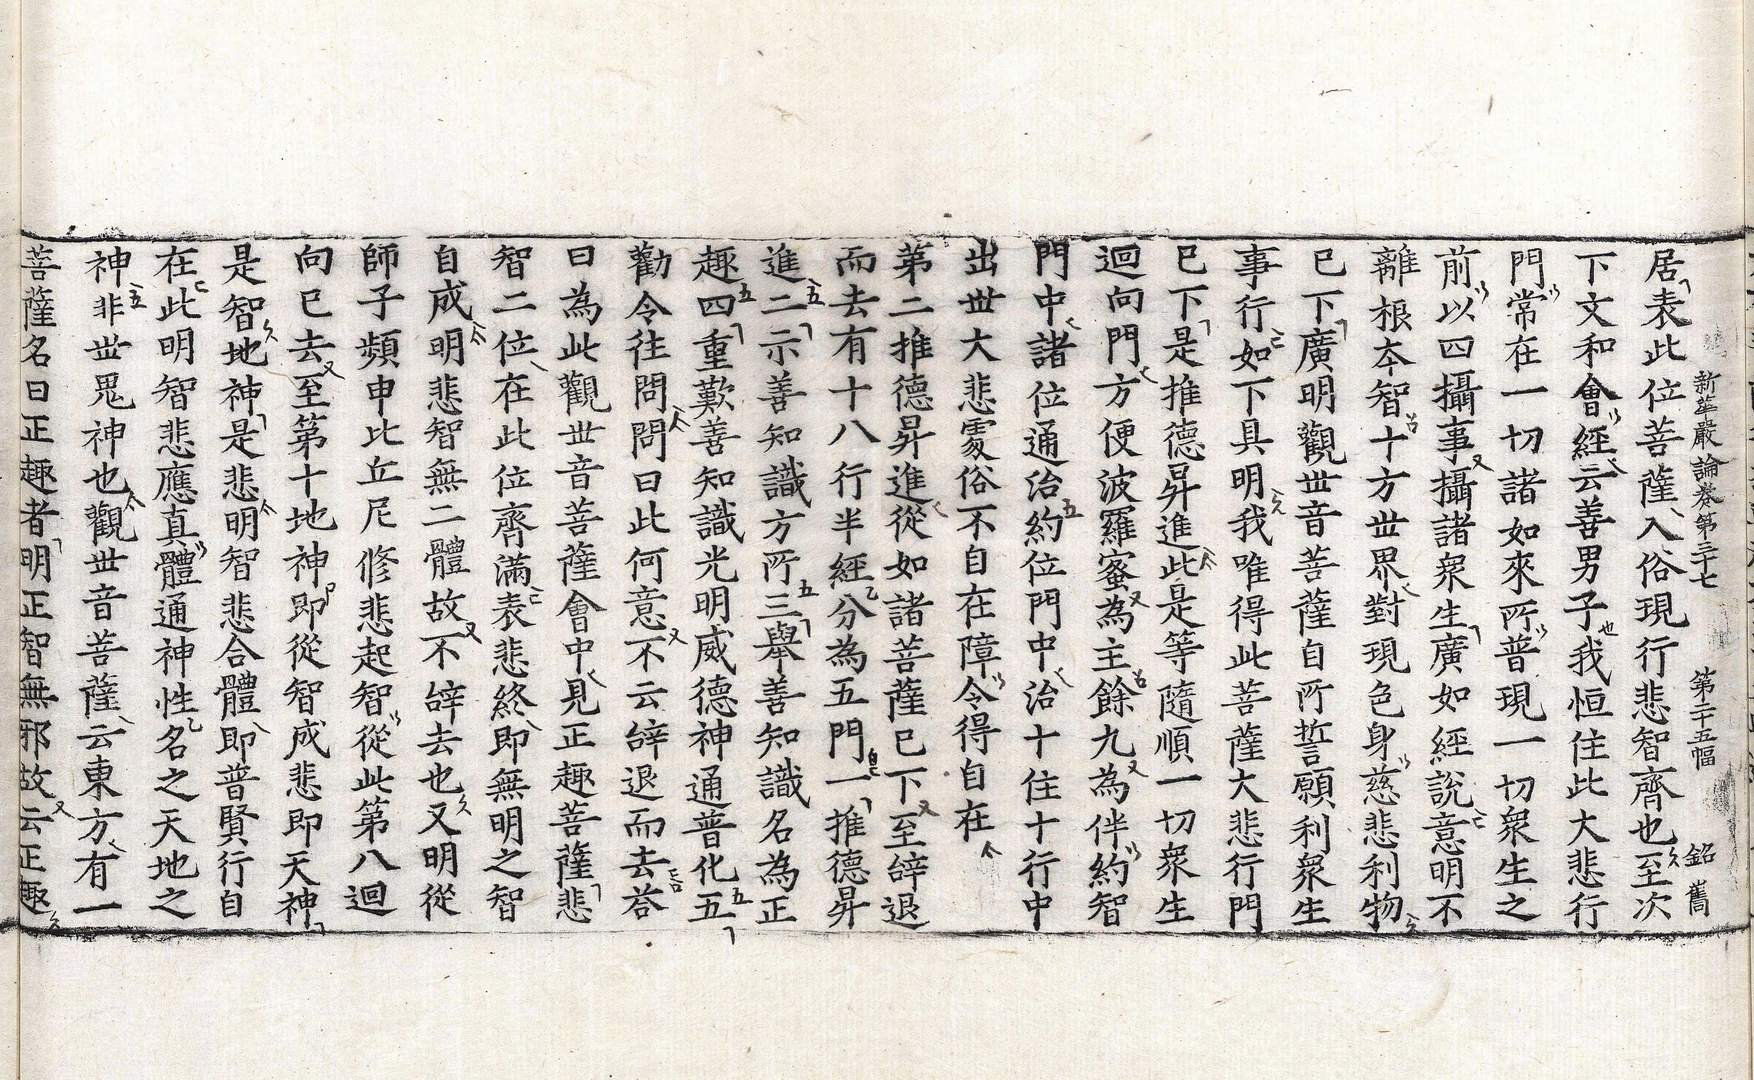 新華嚴論卷第三十七 第二十五幅 銘舊
居表此位菩薩入俗現行悲智齊也至次
下文和會經云善男子我恒住此大悲行
門常在一切諸如來所普現一切衆生之
前以四攝事攝諸衆生廣如經說意明不
離根本智十方世界對現色身慈悲利物
已下廣明觀世音菩薩自所誓願利衆生
事行如下具明我唯得此菩薩大悲行門
已下是推德昇進此是等隨順一切衆生
迴向門方便波羅蜜為主餘九為伴約智
門中諸位通治約位門中治十住十行中
出世大悲處俗不自在障令得自在
第二推德昇進從如諸菩薩已下至辝退
而去有十八行半經分為五門一推德昇
進二示善知識方所三舉善知識名為正
趣四重歎善知識光明威德神通普化五
勸令往問問曰此何意不云辝退而去荅
曰為此觀世音菩薩會中見正趣菩薩悲
智二位在此位齊滿表悲終即無明之智
自成明悲智無二體故不辝去也又明從
師子頻申比丘尼修悲起智從此第八迴
向已去至第十地神即從智成悲即天神
是智地神是悲明智悲合體即普賢行自
在此明智悲應真體通神性名之天地之
神非世鬼神也觀世音菩薩云東方有一
菩薩名曰正趣者明正智無邪故云正趣